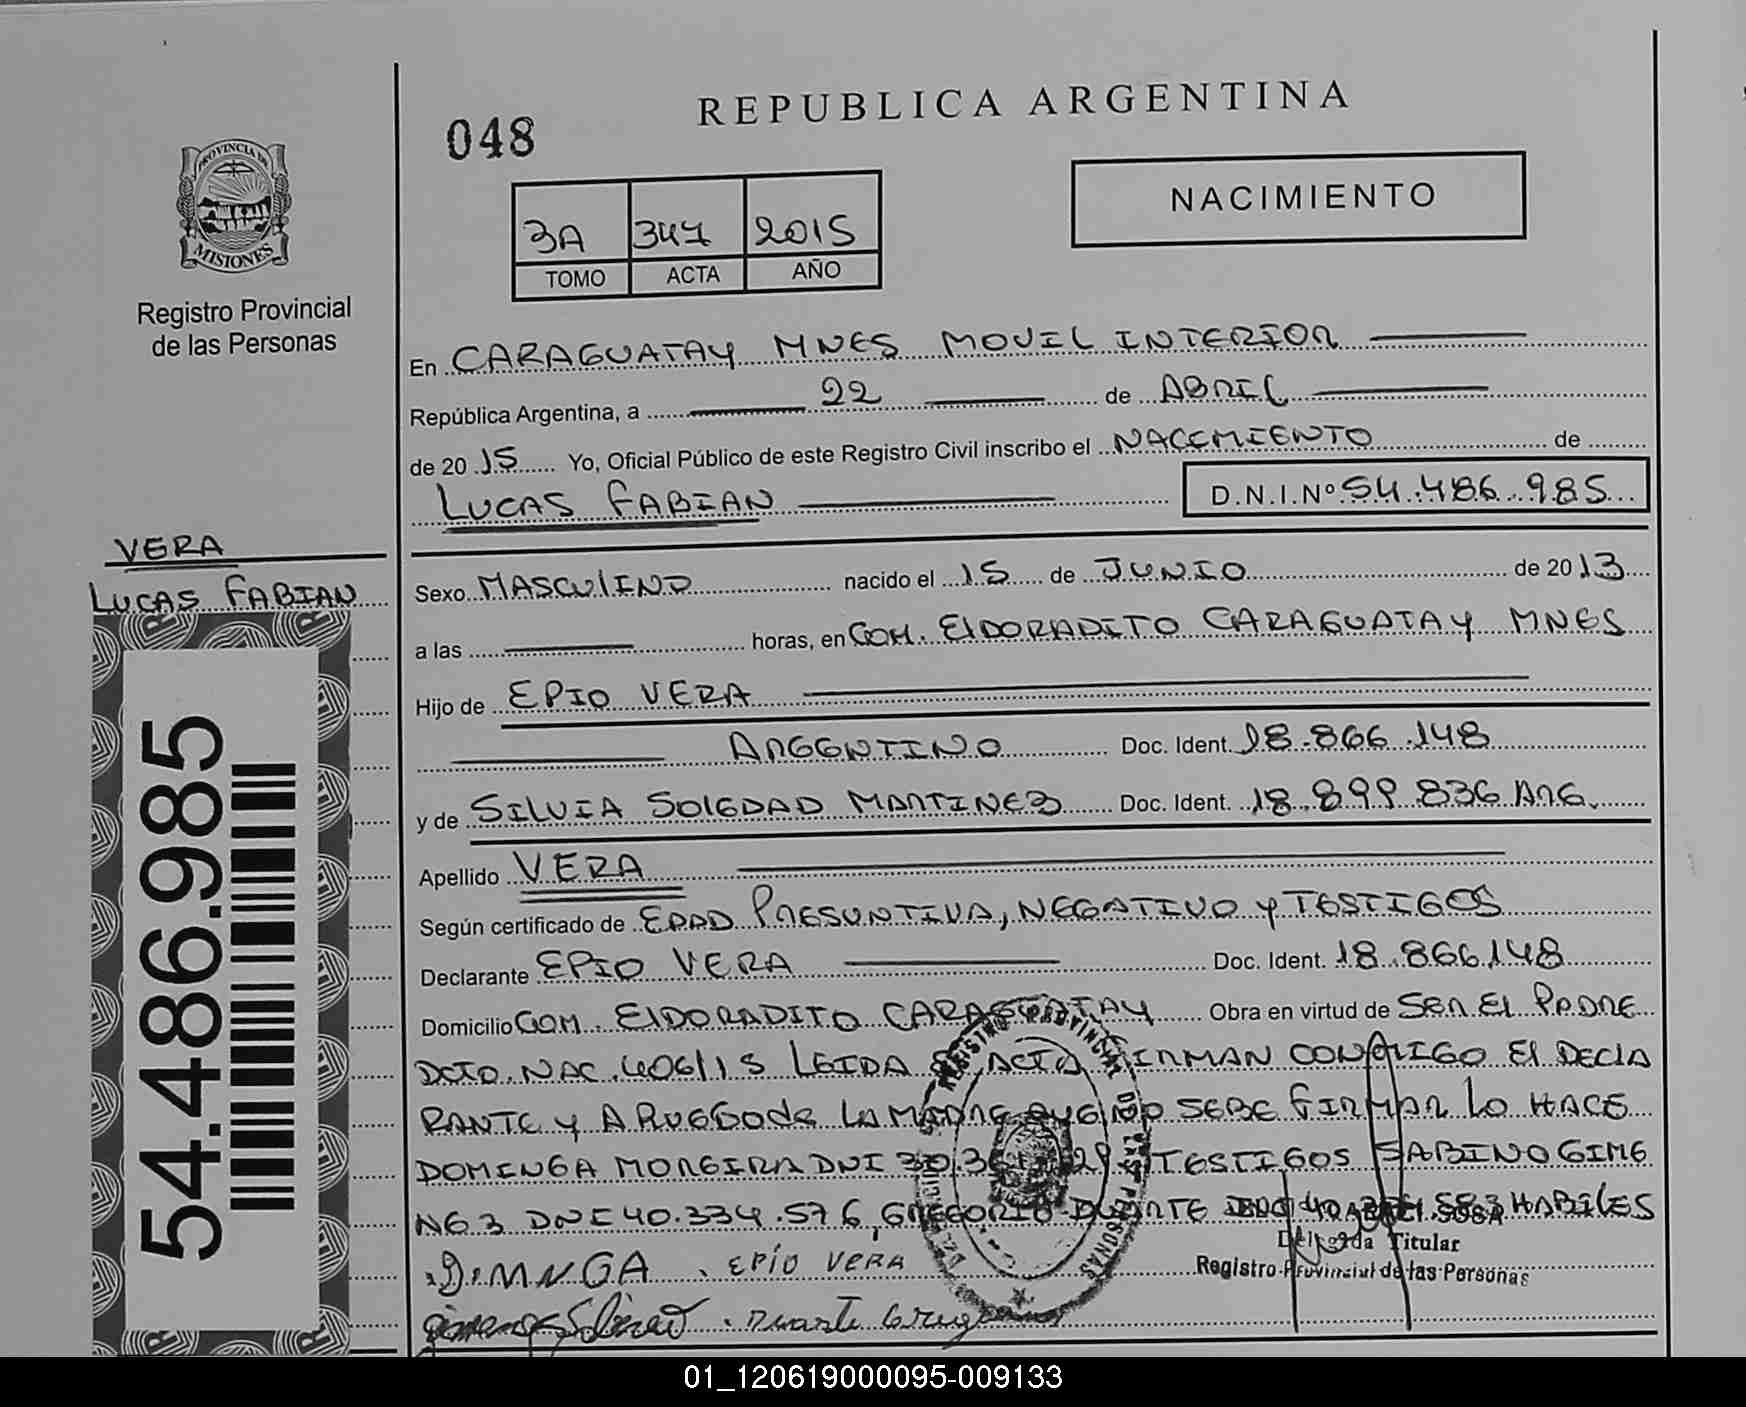 048
REPUBLICA ARGENTINA
PROVINCIA DE
MISIONES
Registro Provincial
de las Personas
3A 347 2015
TOMO ACTA AÑO
NACIMIENTO
En CARAGUATAY MNES MOVIL INTERIOR
República Argentina, a 22 de ABRIL
de 2015 Yo, Oficial Público de este Registro Civil inscribo el NACIMIENTO de
LUCAS FABIAN D.N.I.Nº 54.486.985
VERA
LUCAS FABIAN
54.486.985
Sexo MASCULINO nacido el 15 de JUNIO de 2013
a las horas, en COM. ElDORADITO CARAGUATAY MNES
Hijo de EPIO VERA
ARGENTINO Doc. Ident. 18.866.148
y de SILVIA SOlEDAD MARTINEZ Doc. Ident. 18.899.836 ARG.
Apellido VERA
Según certificado de EDAD PRESUNTIVA, NEGATIVO y TESTIGOS
Declarante EPIO VERA Doc. Ident. 18.866.148
Domicilio COM. ElDORADITO CARAGUATAY Obra en virtud de SER El PADRE
DCTO. NAC. 406/15 LEIDA El ACTA FIRMAN CONMIGO El DECLA
RANTE y A RUEGO de LA MADRE QUE NO SEBE FIRMAR LO HACE
DOMINGA MOREIRA DNI TESTIGOS SABINO GIME
NEZ DNI 40.334.576, GREGORIO DUARTE HABILES
DOMNGA . EPÍO VERA
Delegada Titular
Registro Provincial de las Personas
REGISTRO PROVINCIAL DE LAS PERSONAS
01_120619000095-009133